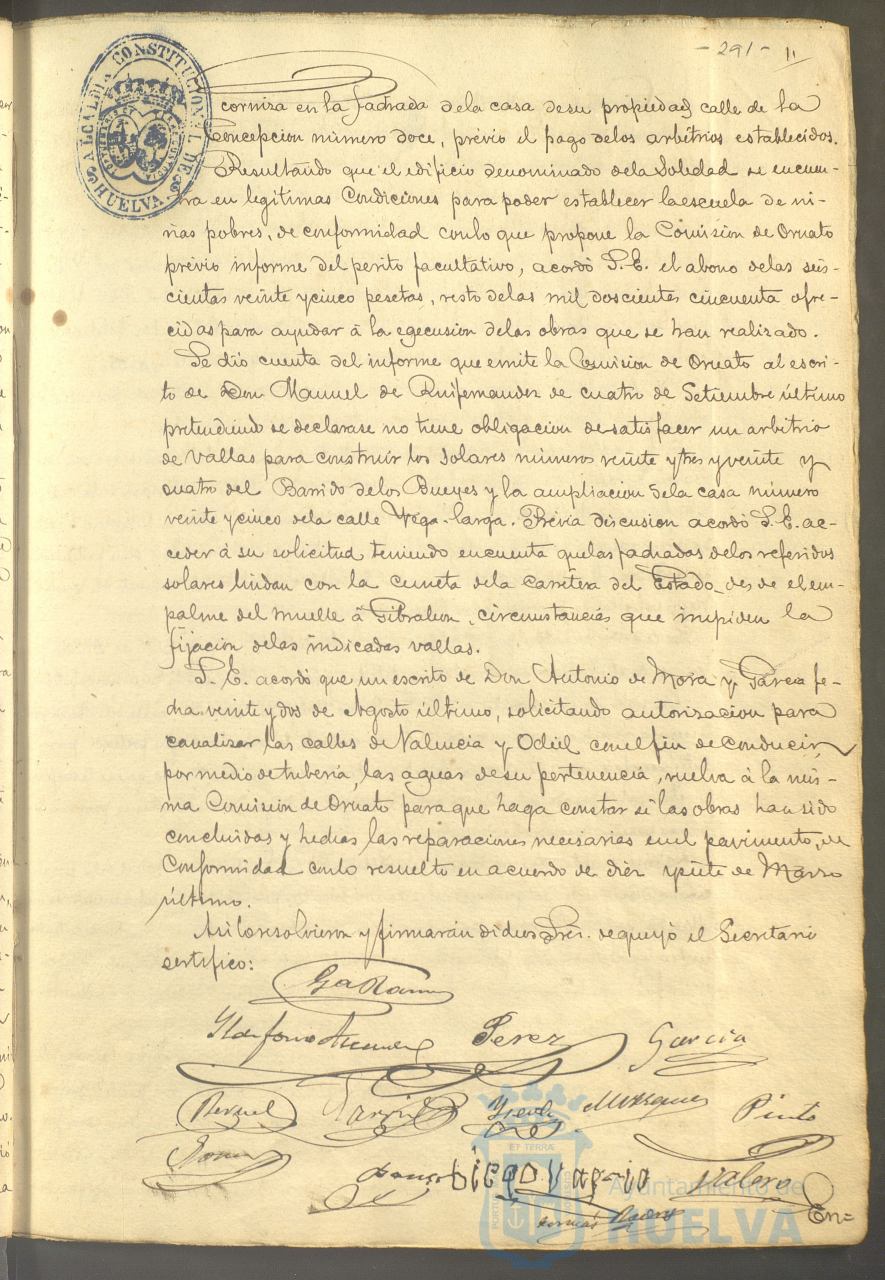 - 291 - 11
ALCALDIA CONSTITUCIONAL DE HUELVA
corniza en la fachada de la casa de su propiedad calle de la
Concepcion número doce, prévio el pago de los arbitrios establecidos.
Resultando que el edificio denominado de la Soledad se encuen-
tra en legítimas Condiciones para poder establecer la escuela de ni-
ñas pobres, de conformidad con lo que propone la Comision de Ornato
prévio informe del perito facultativo, acordó S.E. el abono de las seis-
cientas veinte y cinco pesetas, resto de las mil doscientas cincuenta ofre-
cidas para ayudar á la egecusion de las obras que se han realizado.
Se dió cuenta del informe que emite la Comision de Ornato al escri-
to de Don Manuel de Ruifernandez de cuatro de Setiembre último
pretendiendo se declarase no tiene obligacion de satisfacer un arbitrio
de vallas para construir los solares números veinte y tres y veinte y
cuatro del Barrido de los Bueyes y la ampliacion de la casa número
veinte y cinco de la calle Vega-larga. Prévia discusion acordó S.E. ac-
ceder á su solicitud teniendo en cuenta que las fachadas de los referidos
solares lindan con la cuneta de la Carretera del Estado desde el em-
palme del muelle á Gibraleon, circunstancias que impiden la
fijacion de las indicadas vallas.
S.E. acordó que un escrito de Don Antonio de Mora y Garcia fe-
cha veinte y dos de Agosto último, solicitando autorizacion para
canalizar las calles de Valencia y Odiel con el fin de conducir
por medio de tuberia, las aguas de su pertenencia, vuelva á la mis-
ma Comision de Ornato para que haga constar si las obras han sido
concluidas y hechas las reparaciones necesarias en el pavimento, de
Conformidad con lo resuelto en acuerdo de diez y siete de Marzo
último.
Asi lo resolvieron y firmarán dichos Sres. de que yó el Secretario
sertifico:
Perez
Garcia
Pinto
Valero
En=
PORTUS
ET TERRAE
Ayuntamiento de
HUELVA